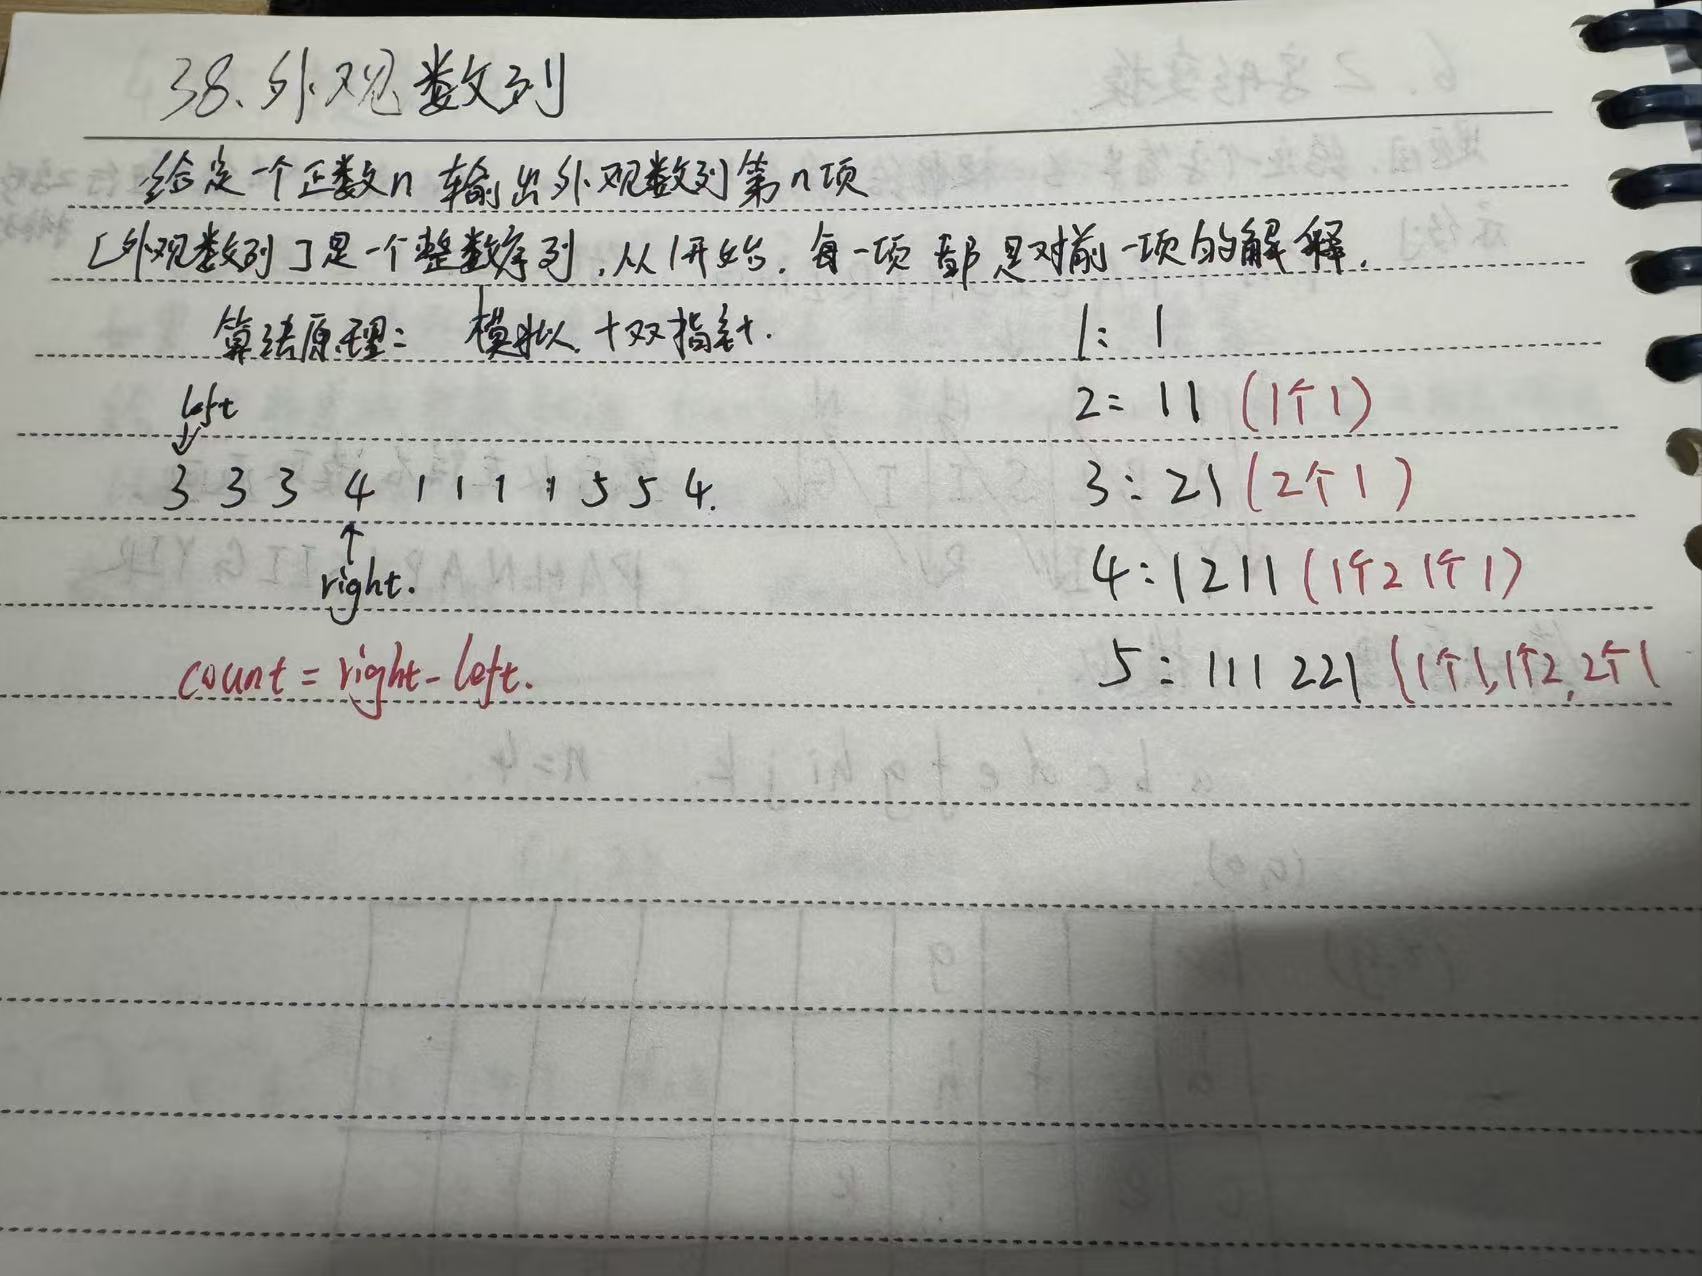 38.外观数列
给定一个正数n 输出外观数列第n项
「外观数列」是一个整数序列,从1开始,每一项都是对前一项的解释.
算法原理: 模拟+双指针.
left
3 3 3 4 1 1 1 1 5 5 4.
right.
count = right - left.
1: 1
2: 11 (1个1)
3: 21 (2个1)
4: 1211 (1个2 1个1)
5: 111221 (1个1,1个2,2个1